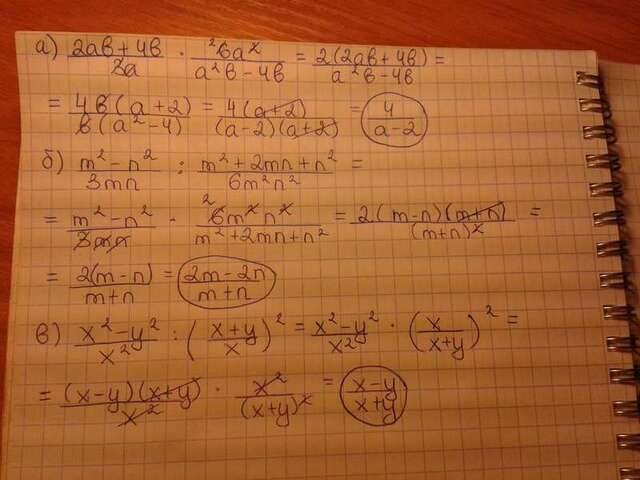 а) (2ab+4b)/(3a) · ²6a²/(a²b-4b) = 2(2ab+4b)/(a²b-4b) =
= 4b(a+2)/(b(a²-4)) = 4(a+2)/((a-2)(a+2)) = 4/(a-2)
б) (m²-n²)/(3mn) : (m²+2mn+n²)/(6m²n²) =
= (m²-n²)/(3mn) · ²6m²n²/(m²+2mn+n²) = 2(m-n)(m+n)/(m+n)² =
= 2(m-n)/(m+n) = (2m-2n)/(m+n)
в) (x²-y²)/x² : ((x+y)/x)² = (x²-y²)/x² · (x/(x+y))² =
= (x-y)(x+y)/x² · x²/(x+y)² = (x-y)/(x+y)